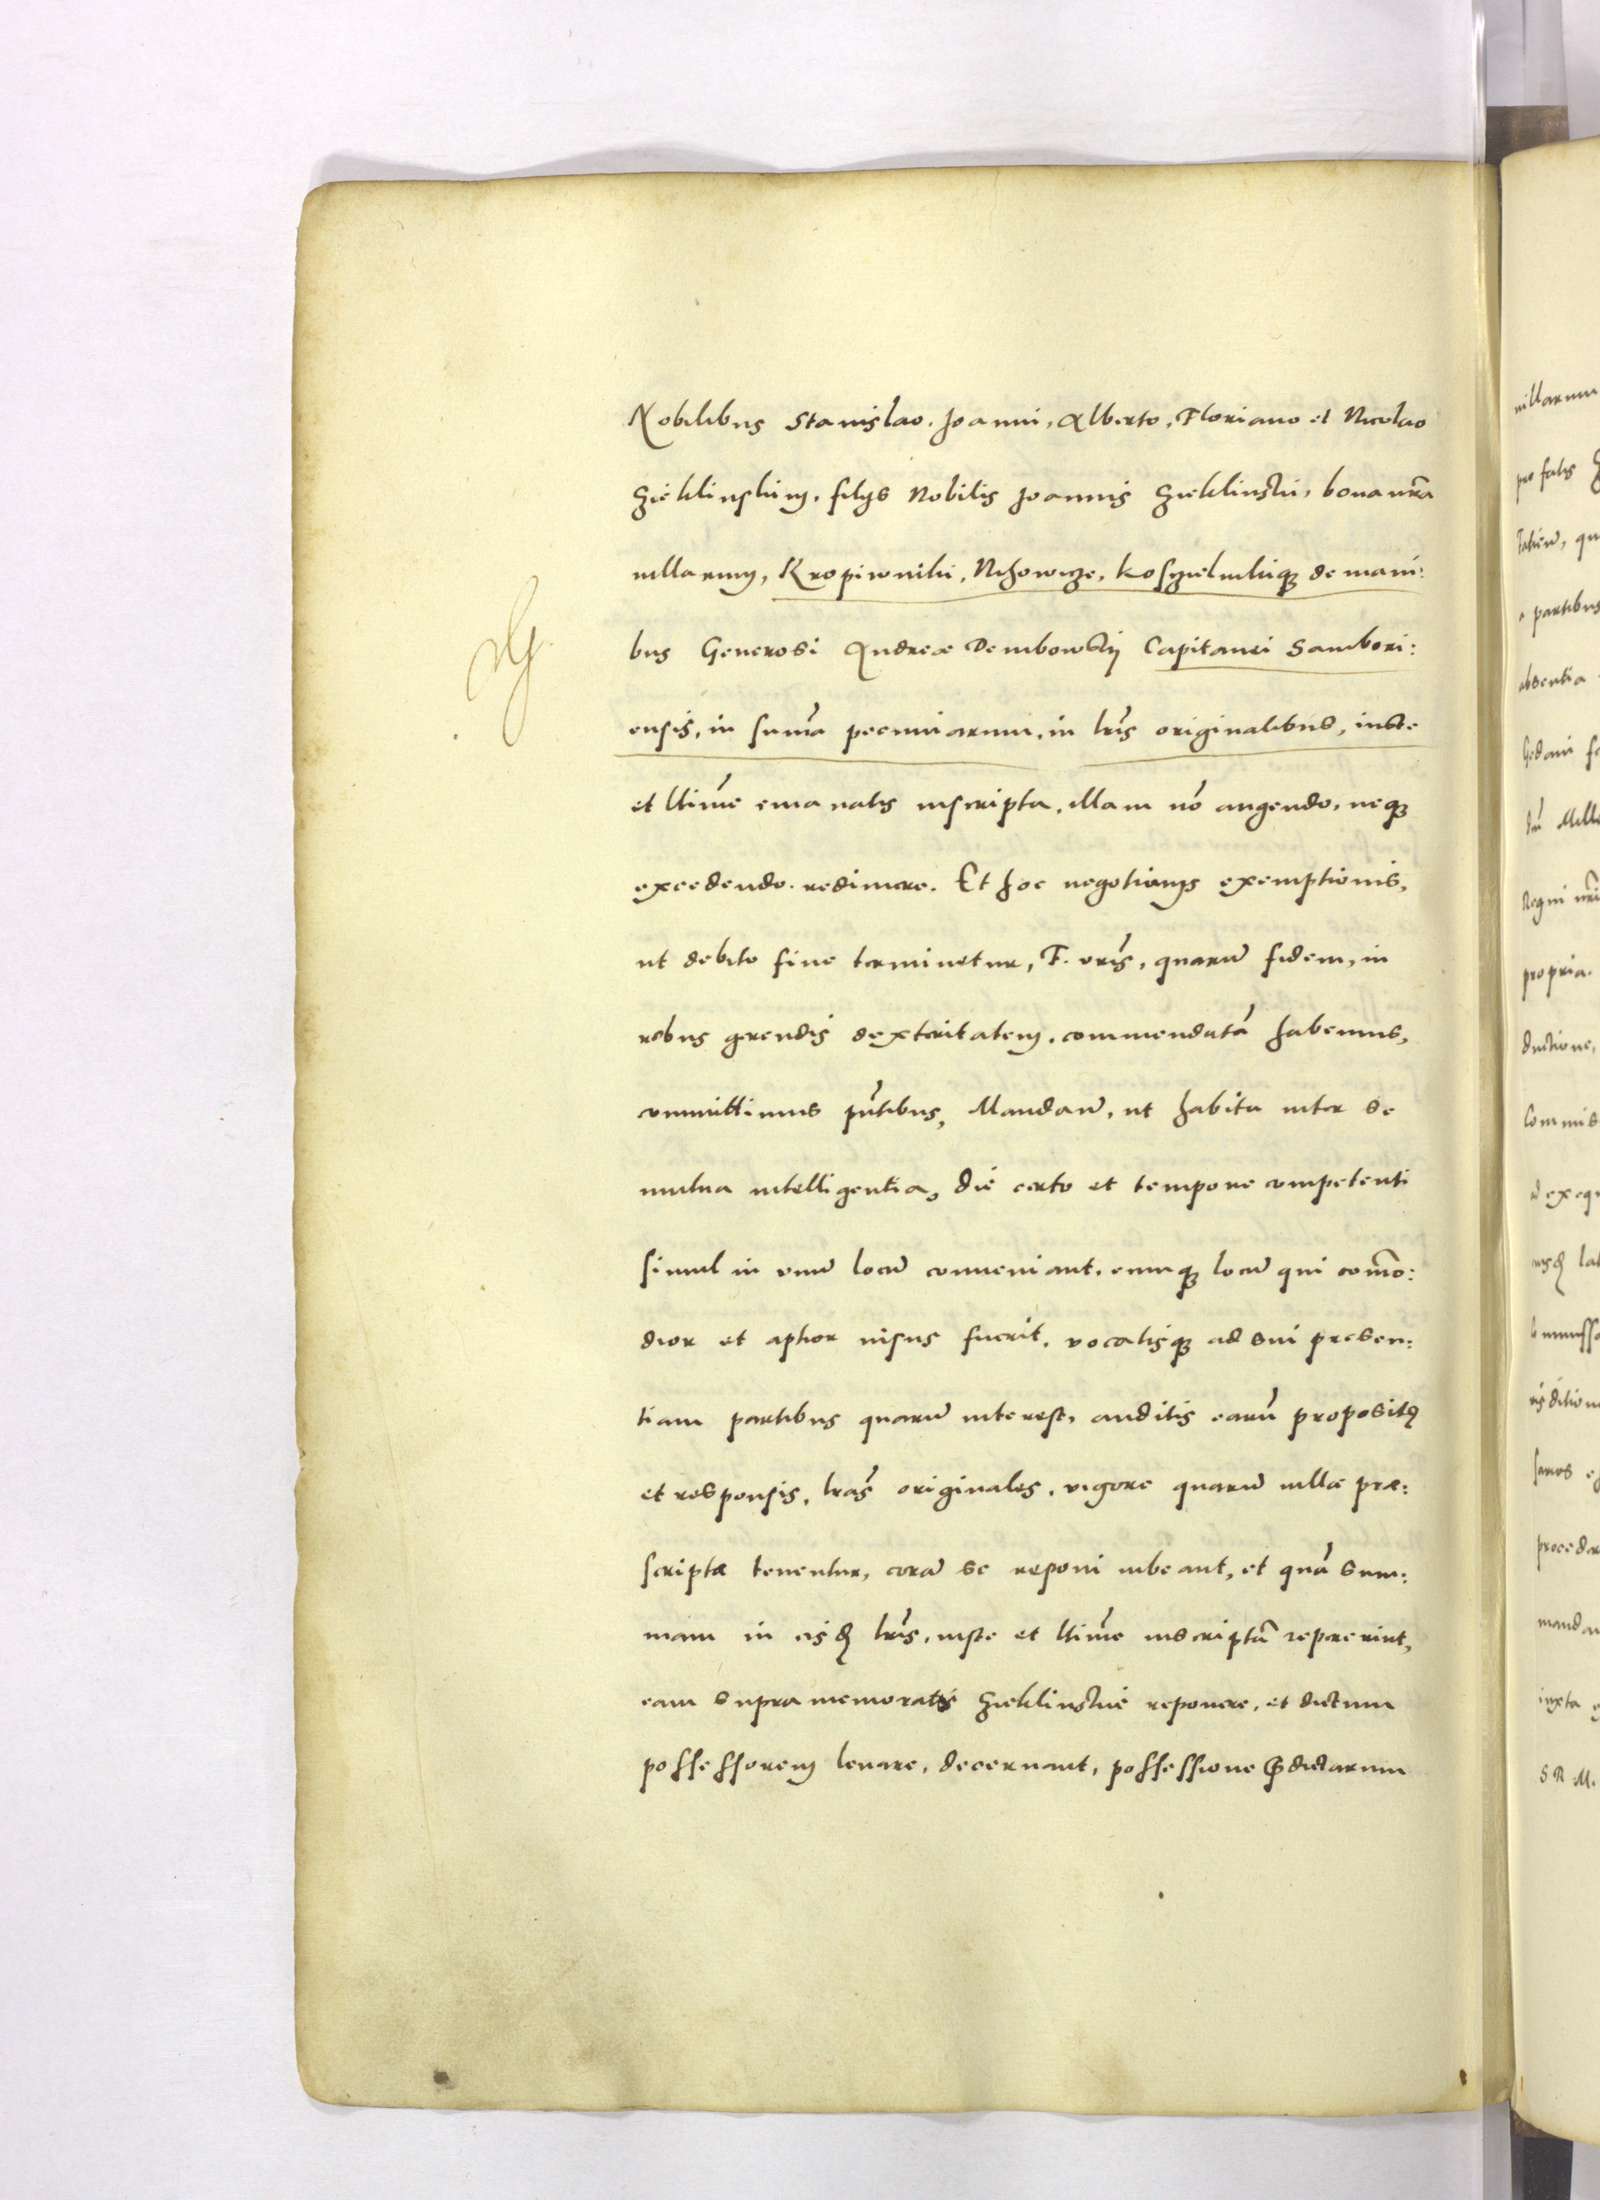 Nobilibus Stanislao, Joanni, Alberto, Floriano et Nicolao
Zieklinskim, filijs Nobilis Joannis Zieklinskii, bona nr̃a
villarum, Kropiwniki, Koszielnikiqꝫ de mani:
bus Generosi Andreæ Dembowskij Capitanei Sambori:
ensis, in sum̃a pecuniarum, in lr̃is originalibus, iuste
et ltim̃e emanatis inscripta, illam nõ augendo, neqꝫ
excedendo, redimere. Et hoc negotium exemptionis,
ut debito fine terminetur, F. vr̃is, quarũ fidem, in
rebus gerendis dexteritatem, commendatã habemus,
committimus pñtibus, Mandañ, ut habita inter se
mutua intelligentia, die certo et tempore competenti
simul in unũ locũ conueniant, eumqꝫ locũ qui com̃o:
dior et aptior uisus fuerit, vocatisqꝫ ad sui presen:
tiam partibus quarũ interest, auditis earũ propositis
et responsis, lr̃as originales, vigore quarũ uillæ præ:
scriptæ tenentur, corã se reponi iubeant, et quã sum:
mam in eisd lr̃is, iuste et ltim̃e inscriptã repererint,
eam supra memoratis Zieklinskiis reponere, et dictum
possessorem leuare, decernant, possessione p̃dictarum
villarum
partibus
absentia
propria.
ductione,
Commis
S R M.